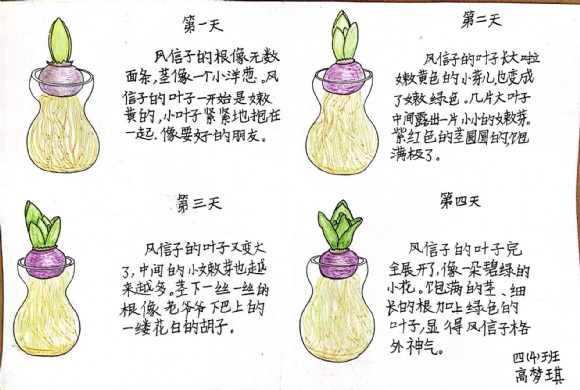 第一天
风信子的根像无数
面条,茎像一个小洋葱。风
信子的叶子一开始是嫩
黄的,小叶子紧紧地抱在
一起,像要好的朋友。
第二天
风信子的叶子长大啦
嫩黄色的小芽儿也变成
了嫩绿色。几片大叶子
中间露出一片小小的嫩芽。
紫红色的茎圆圆的,饱
满极了。
第三天
风信子的叶子又变大
了,中间的小嫩芽也越
来越多。茎下一丝一丝的
根像老爷爷下巴上的
一缕花白的胡子。
第四天
风信子的叶子完
全展开了,像一朵碧绿的
小花。饱满的茎、细
长的根加上绿色的
叶子,显得风信子格
外神气。
四(4)班
高梦琪